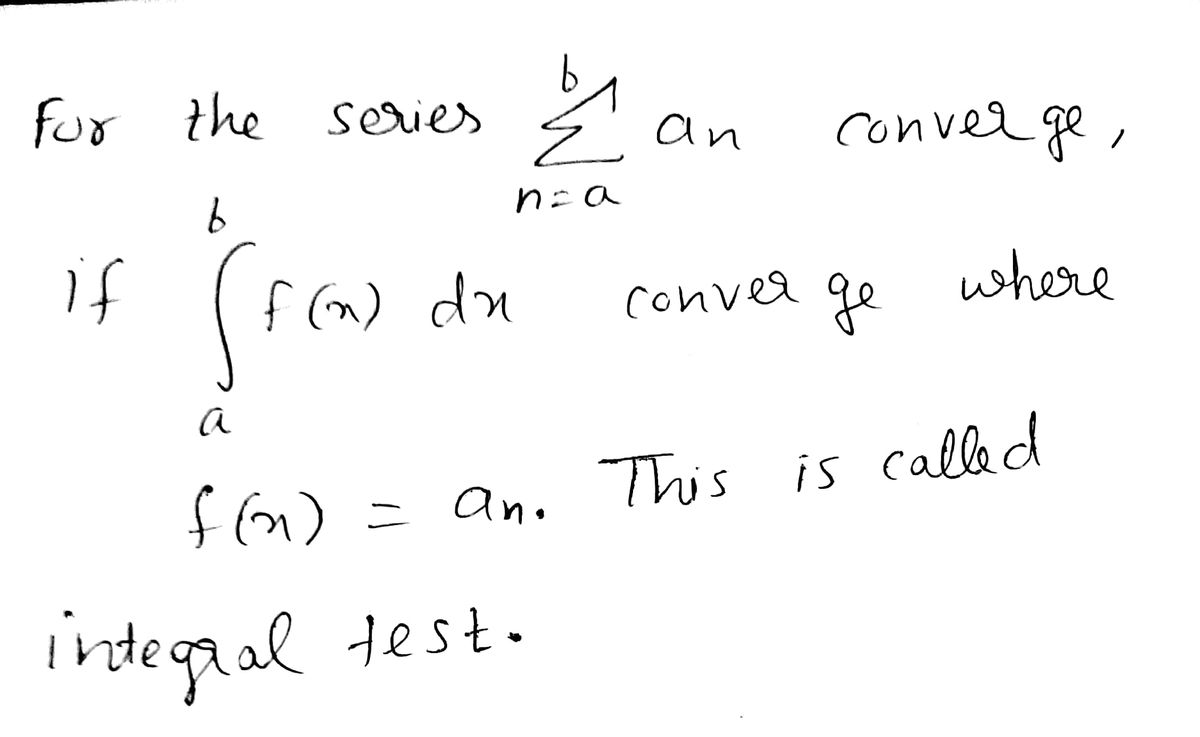 For the series \sum_{n=a}^{b} an converge,
if \int_{a}^{b} f(x) dx converge where
f(n) = an. This is called
integral test.